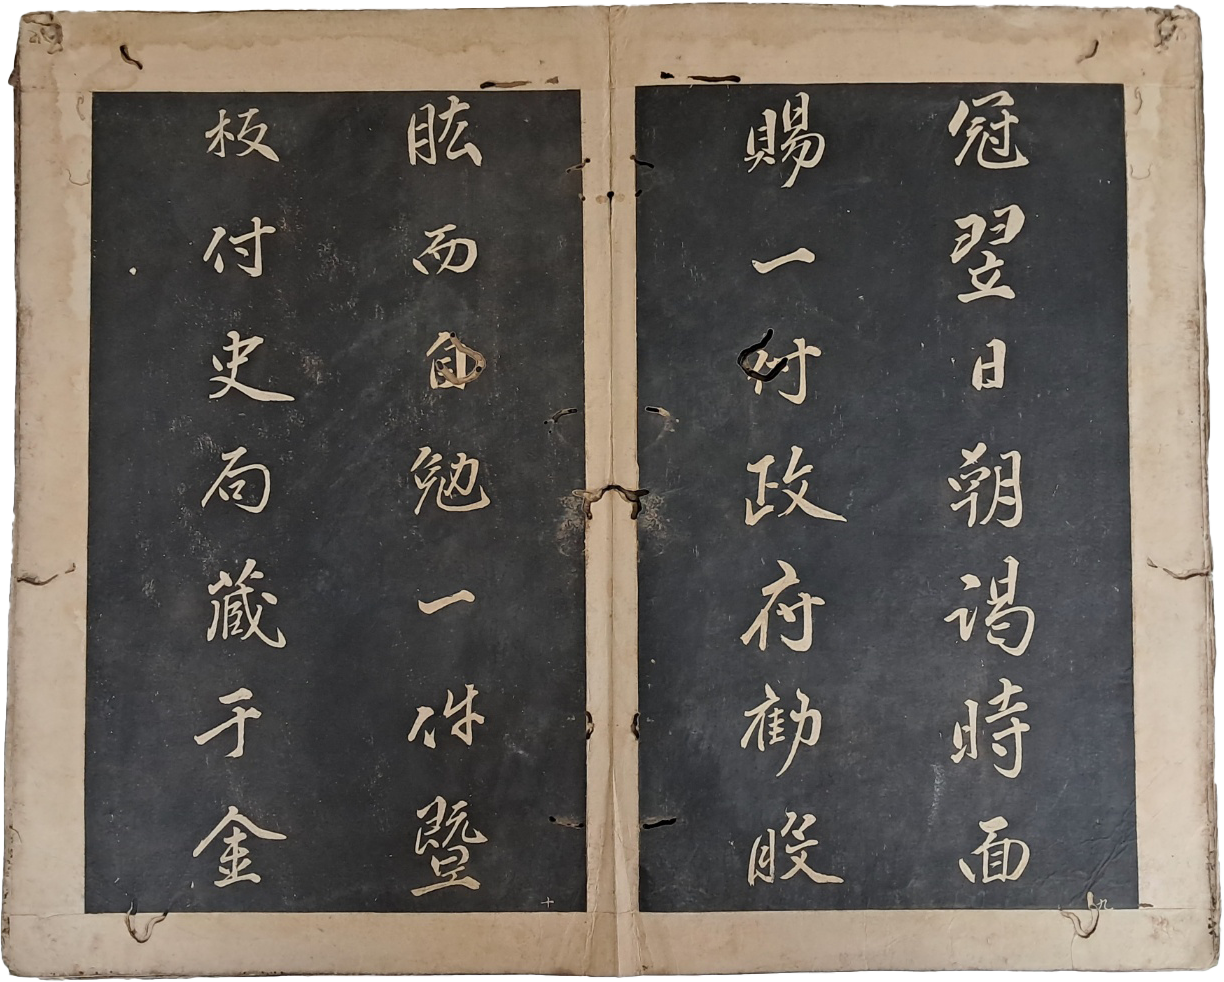 冠翌日朝謁時面
賜一付政府勸股
九
肱而自勉一付暨
板付史局藏于金
十